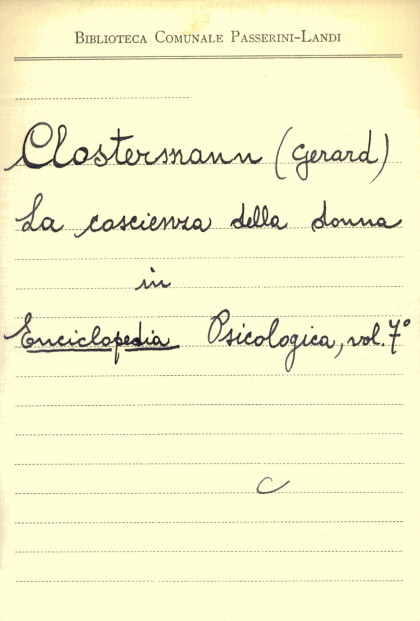 BIBLIOTECA COMUNALE PASSERINI-LANDI
Clostermann (Gerard)
La coscienza della donna
in
Enciclopedia Psicologica, vol. 7°
C